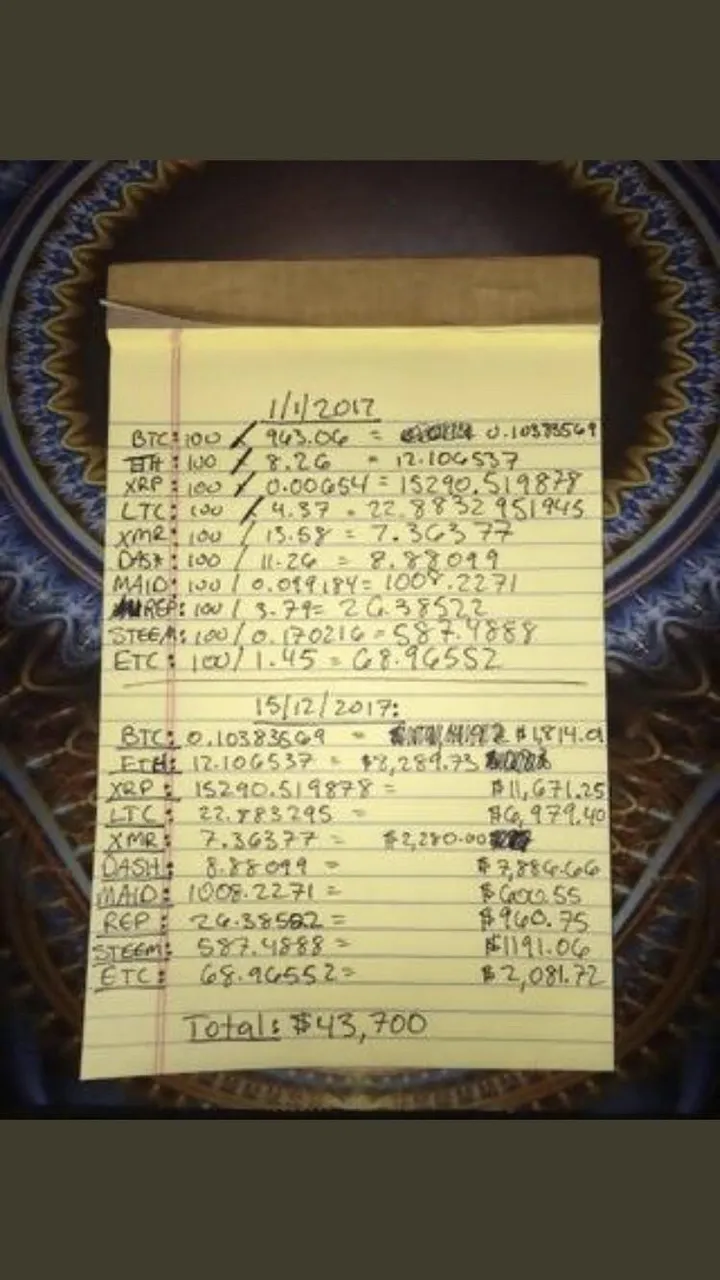 1/1/2017
BTC: 100 / 963.06 = 0.10383569
ETH: 100 / 8.26 = 12.106537
XRP: 100 / 0.00654 = 15290.519878
LTC: 100 / 4.37 = 22.8832951945
XMR: 100 / 13.58 = 7.36377
DASH: 100 / 11.26 = 8.88099
MAID: 100 / 0.099184 = 1008.2271
REP: 100 / 3.79 = 26.38522
STEEM: 100 / 0.170216 = 587.4888
ETC: 100 / 1.45 = 68.96552
15/12/2017:
BTC: 0.10383569 = $1,814.01
ETH: 12.106537 = $8,289.73
XRP: 15290.519878 = $11,671.25
LTC: 22.883295 = $6,979.40
XMR: 7.36377 = $2,280.00
DASH: 8.88099 = $7,886.66
MAID: 1008.2271 = $600.55
REP: 26.38522 = $960.75
STEEM: 587.4888 = $1191.06
ETC: 68.96552 = $2,081.72
Total: $43,700